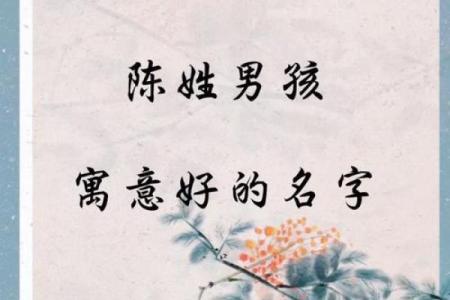 陈姓男孩
寓意好的名字